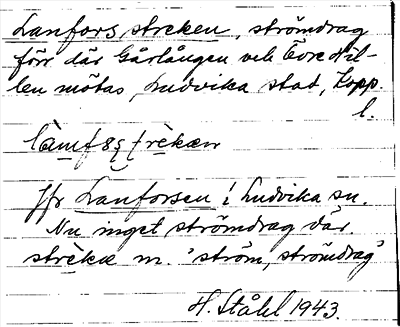 Lanforsstreken, strömdrag
förr där Gårlången och Övre Hil-
len mötas, Ludvika stad, Kopp.
l.
Jfr Lanforsen i Ludvika sn.
Nu inget strömdrag där.
streke m. 'ström, strömdrag'
H. Ståhl 1943.